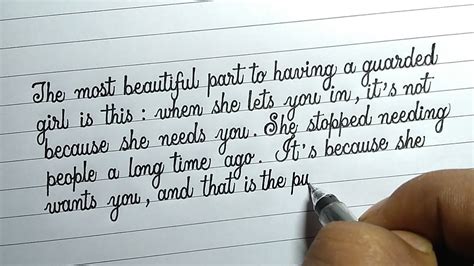 The most beautiful part to having a guarded
girl is this : when she lets you in, it's not
because she needs you. She stopped needing
people a long time ago. It's because she
wants you, and that is the pu